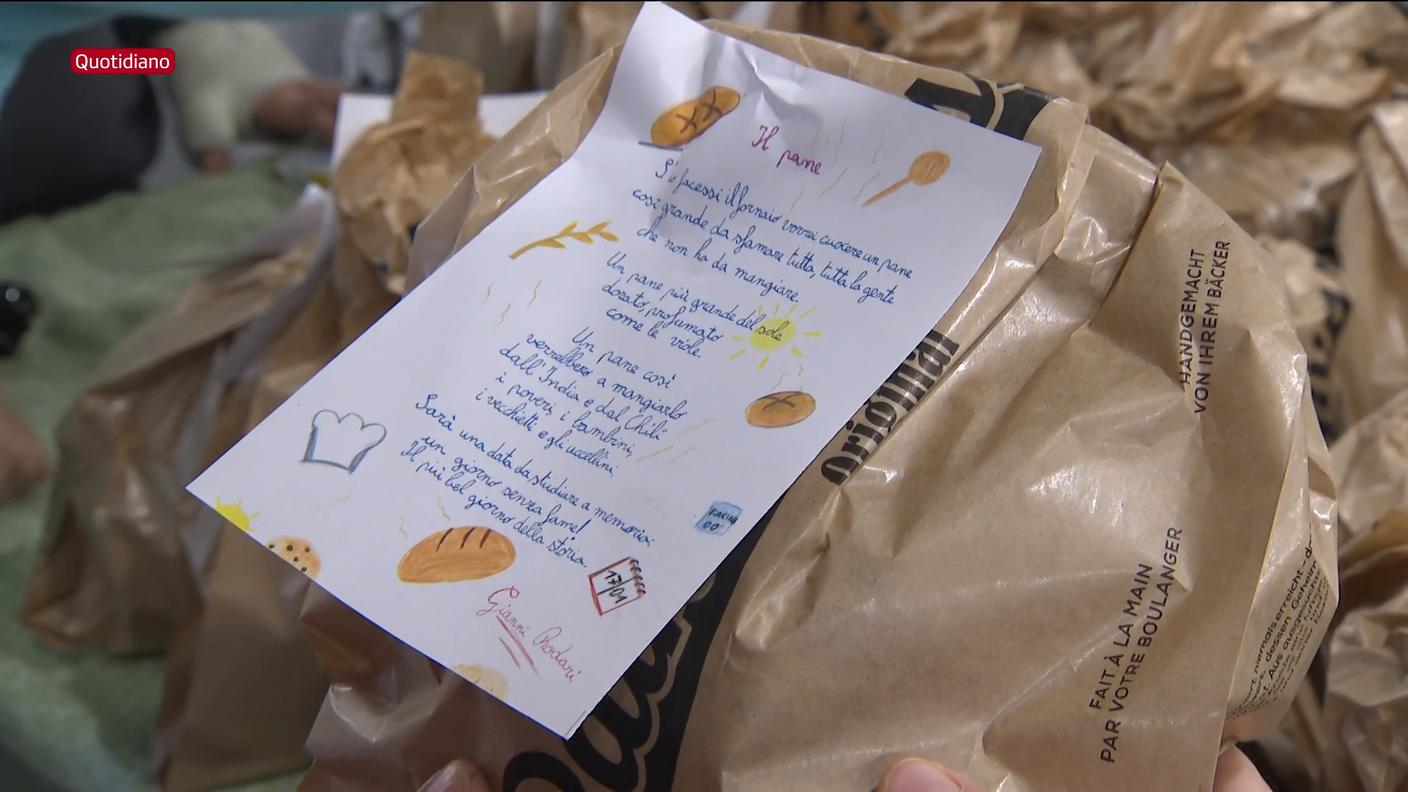 Quotidiano
Il pane
S'io facessi il fornaio vorrei cuocere un pane
così grande da sfamare tutta, tutta la gente
che non ha da mangiare.
Un pane più grande del sole
dorato, profumato
come le viole.
Un pane così
verrebbero a mangiarlo
dall'India e dal Chilì
i poveri, i bambini,
i vecchietti e gli uccellini.
Sarà una data da studiare a memoria:
un giorno senza fame!
Il più bel giorno della storia.
FARINA
00
17/01
Gianni Rodari
Original
HANDGEMACHT
VON IHREM BÄCKER
FAIT À LA MAIN
PAR VOTRE BOULANGER
niemals erreicht
dessen Geheim
Aus ausgesuch